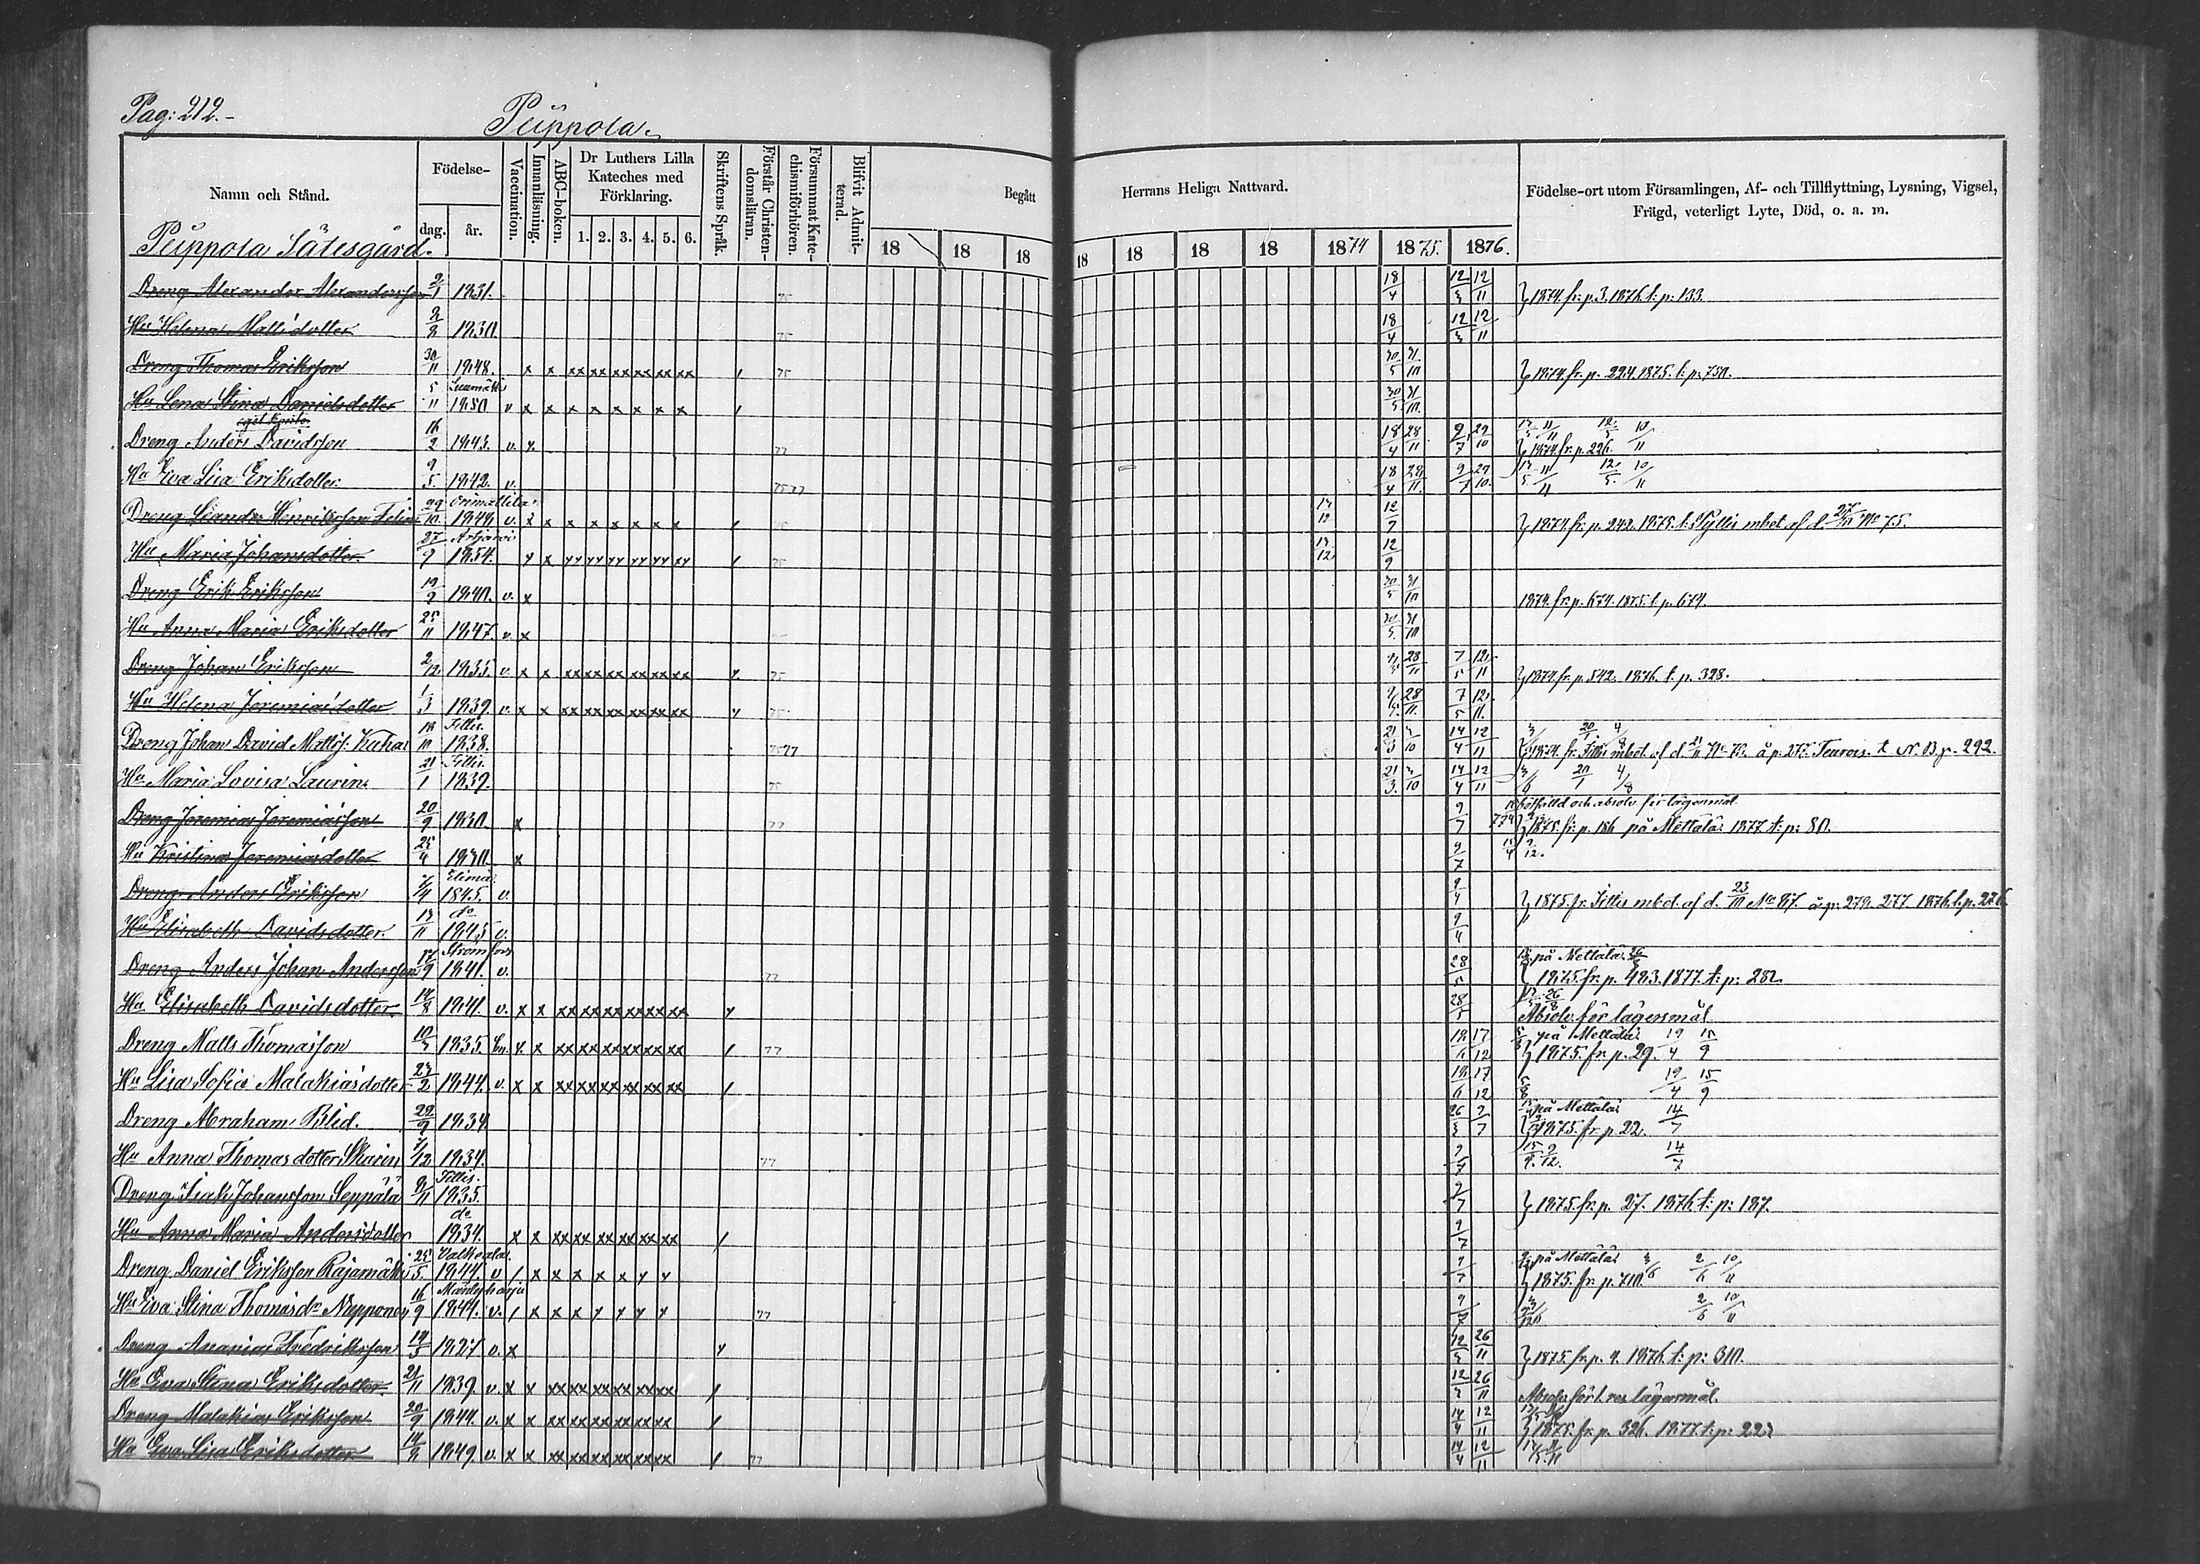 Pag: 212.
Peippola.
Namn och Stånd.
Födelse-
dag. år.
Vaccination.
Innanläsning.
ABC-boken.
Dr Luthers Lilla Kateches med Förklaring.
1. 2. 3. 4. 5. 6.
Skriftens Språk.
Förstår Christendomsläran.
Försummat Katechismiförhören.
Blifvit Admitterad.
Begått Herrans Heliga Nattvard.
18 18 18 18 18 18 18 1874 1875. 1876.
Födelse-ort utom Församlingen, Af- och Tillflyttning, Lysning, Vigsel,
Frägd, veterligt Lyte, Död, o. a. m.
Peippola Sätesgård.
Dreng Alexander Alexandersson 2/1 1831. 75 18/4 12/3 12/11 1874. fr. p. 3. 1876. t: p. 133.
Hu Helena Mattsdotter 1830. 75 18/4 12/3 12/11
Dreng Thomas Eriksson 30/11 1848. x x xx xx xx xx xx xx 75 30/5 31/10 1874. fr. p. 224. 1875. t: p. 750.
Hu Lena Stina Danielsdotter 5/11 1850 v x x x x x x x x 30/5 31/10
Dreng Anders Davidsson 16/2 1843. v. x. 77 18/4 28/11 9/7 29/10 1874. fr. p. 226.
Hu Eva Lisa Eriksdotter. 9/5 1842. v. 75 77 18/4 28/11 9/7 29/10.
Orimattila
Dreng Leander Henriksson 29/10 1848. v. x x x x x x x 12/9 1874. fr. p. 242. 1875. t. Pyttis mbet af d. 27/10 No 75.
Artjärvi
Hu Maria Johansdotter. 27/9 1854. 75 12/9
Dreng Erik Eriksson 19/9 1840. v. x 30/5 31/10 1874. fr. p. 674. 1875. t. p. 674.
Hu Anna Maria Eriksdotter 25/11 1847. v. x 30/5 31/10
Dreng Johan Eriksson 2/12 1835. v. x x xx xx xx xx xx xx 75 28/11 7/5 12/11 1874. fr. p. 542. 1876. t. p. 328.
Hu Helena Jeremiasdotter 1/3 1839. v. x x xx xx xx xx xx xx 75 28/11. 7/5 12/11.
Dreng Johan David Matts: Kuha 1838. 75 77 21/3 14/4 12/11 No B. p. 292.
Hu Maria Lovisa Laurin 21/1 1839. 75 21/3. 14/4 12/11
Dreng Jeremias Jeremiasson 20/9 1830. x 77 9/7 1875. fr. p. 186 på Mettälä 1877. t: p: 80.
Hu Kristina Jeremiasdotter 25/4 1830. x 9/7
Elimä
Dreng Anders Eriksson 1845. v. 9/4 1875. fr. mbet. af d. 23/10 No 87. 1876. t. p. 276.
do
Hu Elisabeth Davidsdotter. 13/11 1845 v. 9/4
Strömfors
Dreng Anders Johan Andersson 17/9 1841. v. 77 28/5 på Mettälä
1875. fr. p. 483. 1877. t: p: 282
Hu Elisabeth Davidsdotter 14/8 1841. v. x x xx xx xx xx xx xx 28/5 Absolv. för lägersmål
Dreng Matts Thomasson 1835. x. x xx xx xx xx xx xx 77 18/6 17/12 på Mettälä 19/4 15/9
1875. fr. p. 29.
Hu Lisa Sofia Malakiasdotter 23/2 1844. v. x x xx xx xx xx xx xx 18/6 17/12 19/4 15/9
Dreng Abraham Blid. 22/9 1834 26/3 9/7 på Mettälä 14/7
1875. fr. p. 22.
Hu Anna Thomasdotter Skarin 1834. 77 9/7 14/7
Dreng Isak Johansson Seppälä 9/11 1835. 9/7 1875. fr. p. 27. 1876. t: p: 187.
do
Hu Anna Maria Andersdotter 1834. x x xx xx xx xx xx xx 9/7
Valkeala
Dreng Daniel Eriksson Rajamäki 25/5. 1844. v 9/7 på Mettälä 2/6 10/11
1875. fr. p. 710.
Mäntyharju
Hu Eva Stina Thomasdr Napponen 16/9 1844. v. 77 9/7 2/6 10/11
Dreng Ananias Fredriksson 1827. v. x 12/3 26/11 1875. fr. p. 4. 1876. t: p: 310.
Hu Eva Stina Eriksdotter. 21/11 1839. v. x x xx xx xx xx xx xx 12/3 26/11 Absolv. för lägersmål.
Dreng Malakias Eriksson 20/9 1844. v. x x xx xx xx xx xx xx 14/4 12/11 1875. fr. p. 326. 1877. t: p: 222
Hu Eva Lisa Eriksdotter 1849. v. x x xx xx xx xx xx xx 77 14/4 12/11